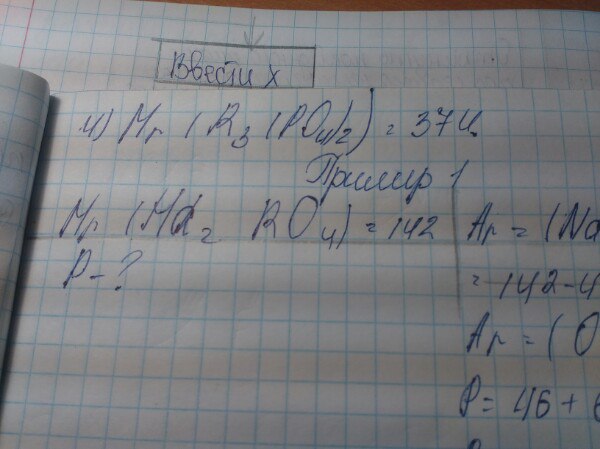 Ввести х
4) Mr (R3(PO4)2) = 374
Пример 1
Mr (Na2 RO4) = 142
P - ?
Ar = (Na
= 142-4
Ar = (O
P = 46 + 6